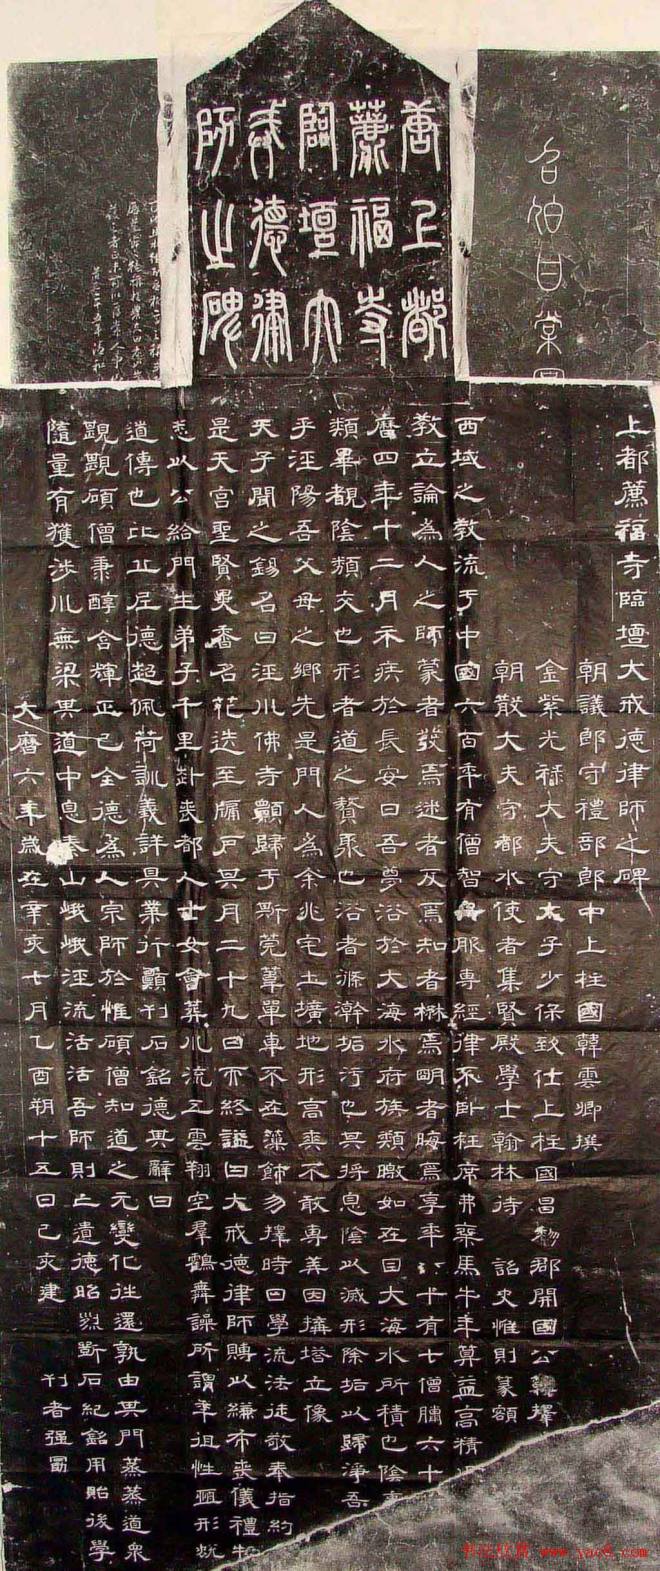 唐上都
薦福寺
臨壇大
戒德律
師之碑
上都薦福寺臨壇大戒德律師之碑
朝議郎守禮部郎中上柱國韓雲卿撰
金紫光祿大夫守太子少保致仕上柱國昌黎郡開國公韓擇
朝散大夫守都水使者集賢殿學士翰林待 詔史惟則篆額
西域之教流于中國六百年有僧智舟服專經律不臥枉席弗乘馬牛年算益高精
教立論為人之師蒙者發焉迷者反焉知者楙焉明者晦焉享年八十有七僧臘六十
曆四年十二月示疾於長安曰吾夢浴於大海水府族類瞰如在目大海水所積也陰
類畢覩陰類交也形者道之贅聚也浴者滌澣垢污也其將息陰以滅形除垢以歸淨吾
乎涇陽吾父母之鄉先是門人為余兆宅土壙地形高爽不敢專美因搆塔立像
天子聞之錫名曰涇川佛寺顧歸于斯莞葦單車不在藻飾勿擇時日學流法徒敬奉指約
是天宮聖賢異香名花迭至牖戶其月二十九日示終謚曰大戒德律師賻以縑布喪儀禮物
悉以公給門生弟子千里赴喪都人士女會葬川流五雲翔空羣鶴舞譟所謂年徂性
道傳也比丘尼德超佩荷訓義詳具業行顧刊石銘德其辭曰
覬覬碩僧秉醇含輝正己全德為人宗師於惟碩僧知道之元變化往還孰由其門蒸蒸道衆
隨量有獲涉川無梁畏道中息泰山峨峨涇流活活吾師則亡遺德昭斲石紀銘用貽後學
大曆六年歲在辛亥七月乙酉朔十五日己亥建
刊者强
www.yac8.com